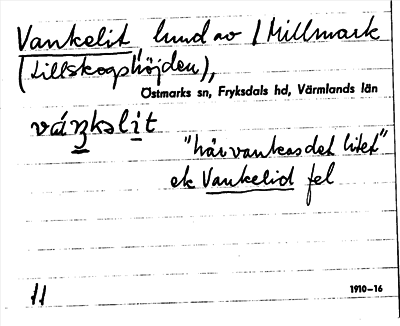 Vankelit, lund av / Millmark
(Lillskogshöjden),
Östmarks sn, Fryksdals hd, Värmlands län
váŋkəlit
"här vankas det litet"
ek Vankelid fel
11
1910–16